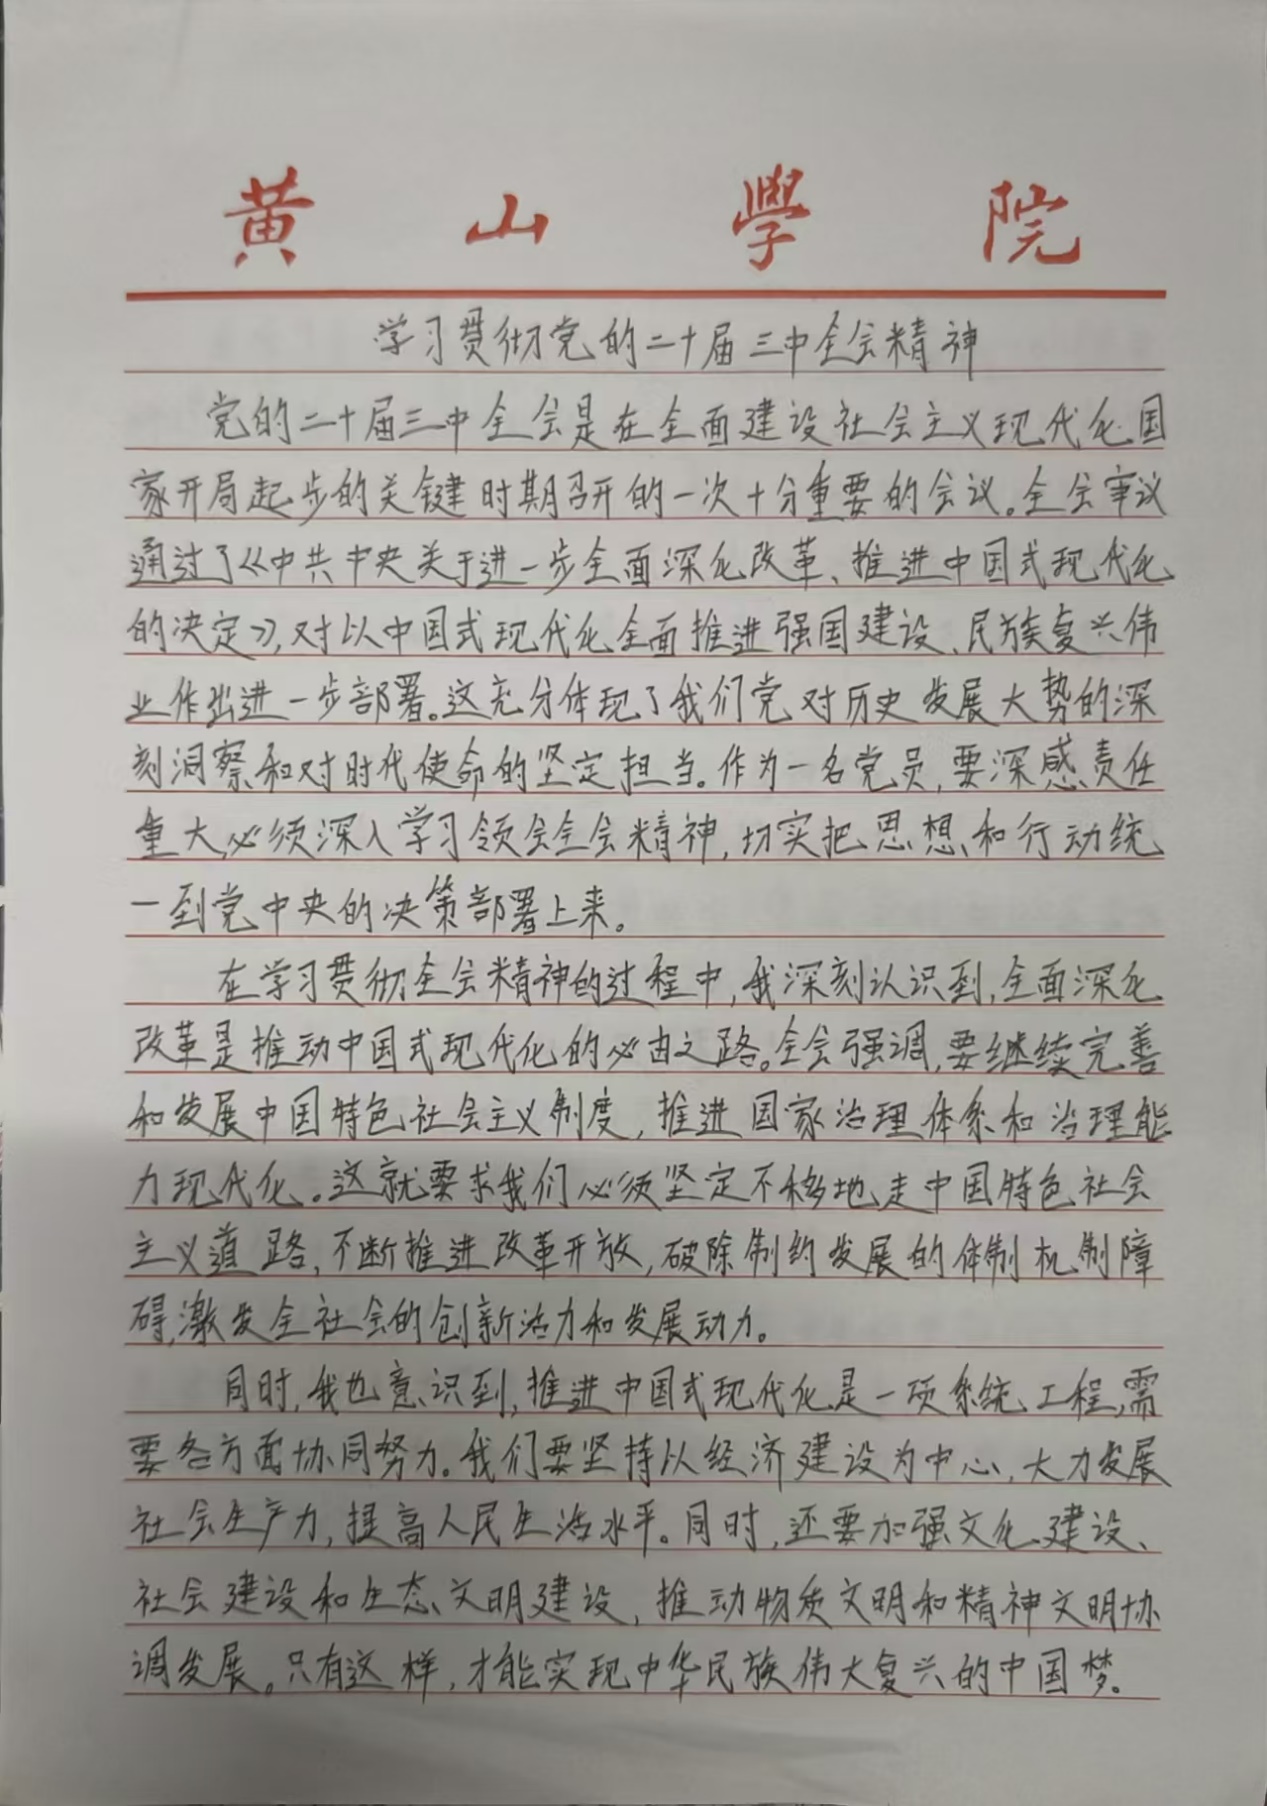 黄山學院
学习贯彻党的二十届三中全会精神
党的二十届三中全会是在全面建设社会主义现代化国
家开局起步的关键时期召开的一次十分重要的会议。全会审议
通过了《中共中央关于进一步全面深化改革、推进中国式现代化
的决定》，对以中国式现代化全面推进强国建设、民族复兴伟
业作出进一步部署。这充分体现了我们党对历史发展大势的深
刻洞察和对时代使命的坚定担当。作为一名党员，要深感责任
重大，必须深入学习领会全会精神，切实把思想和行动统
一到党中央的决策部署上来。
在学习贯彻全会精神的过程中，我深刻认识到，全面深化
改革是推动中国式现代化的必由之路。全会强调，要继续完善
和发展中国特色社会主义制度，推进国家治理体系和治理能
力现代化。这就要求我们必须坚定不移地走中国特色社会
主义道路，不断推进改革开放，破除制约发展的体制机制障
碍，激发全社会的创新活力和发展动力。
同时，我也意识到，推进中国式现代化是一项系统工程，需
要各方面协同努力。我们要坚持以经济建设为中心，大力发展
社会生产力，提高人民生活水平。同时，还要加强文化建设、
社会建设和生态文明建设，推动物质文明和精神文明协
调发展。只有这样，才能实现中华民族伟大复兴的中国梦。